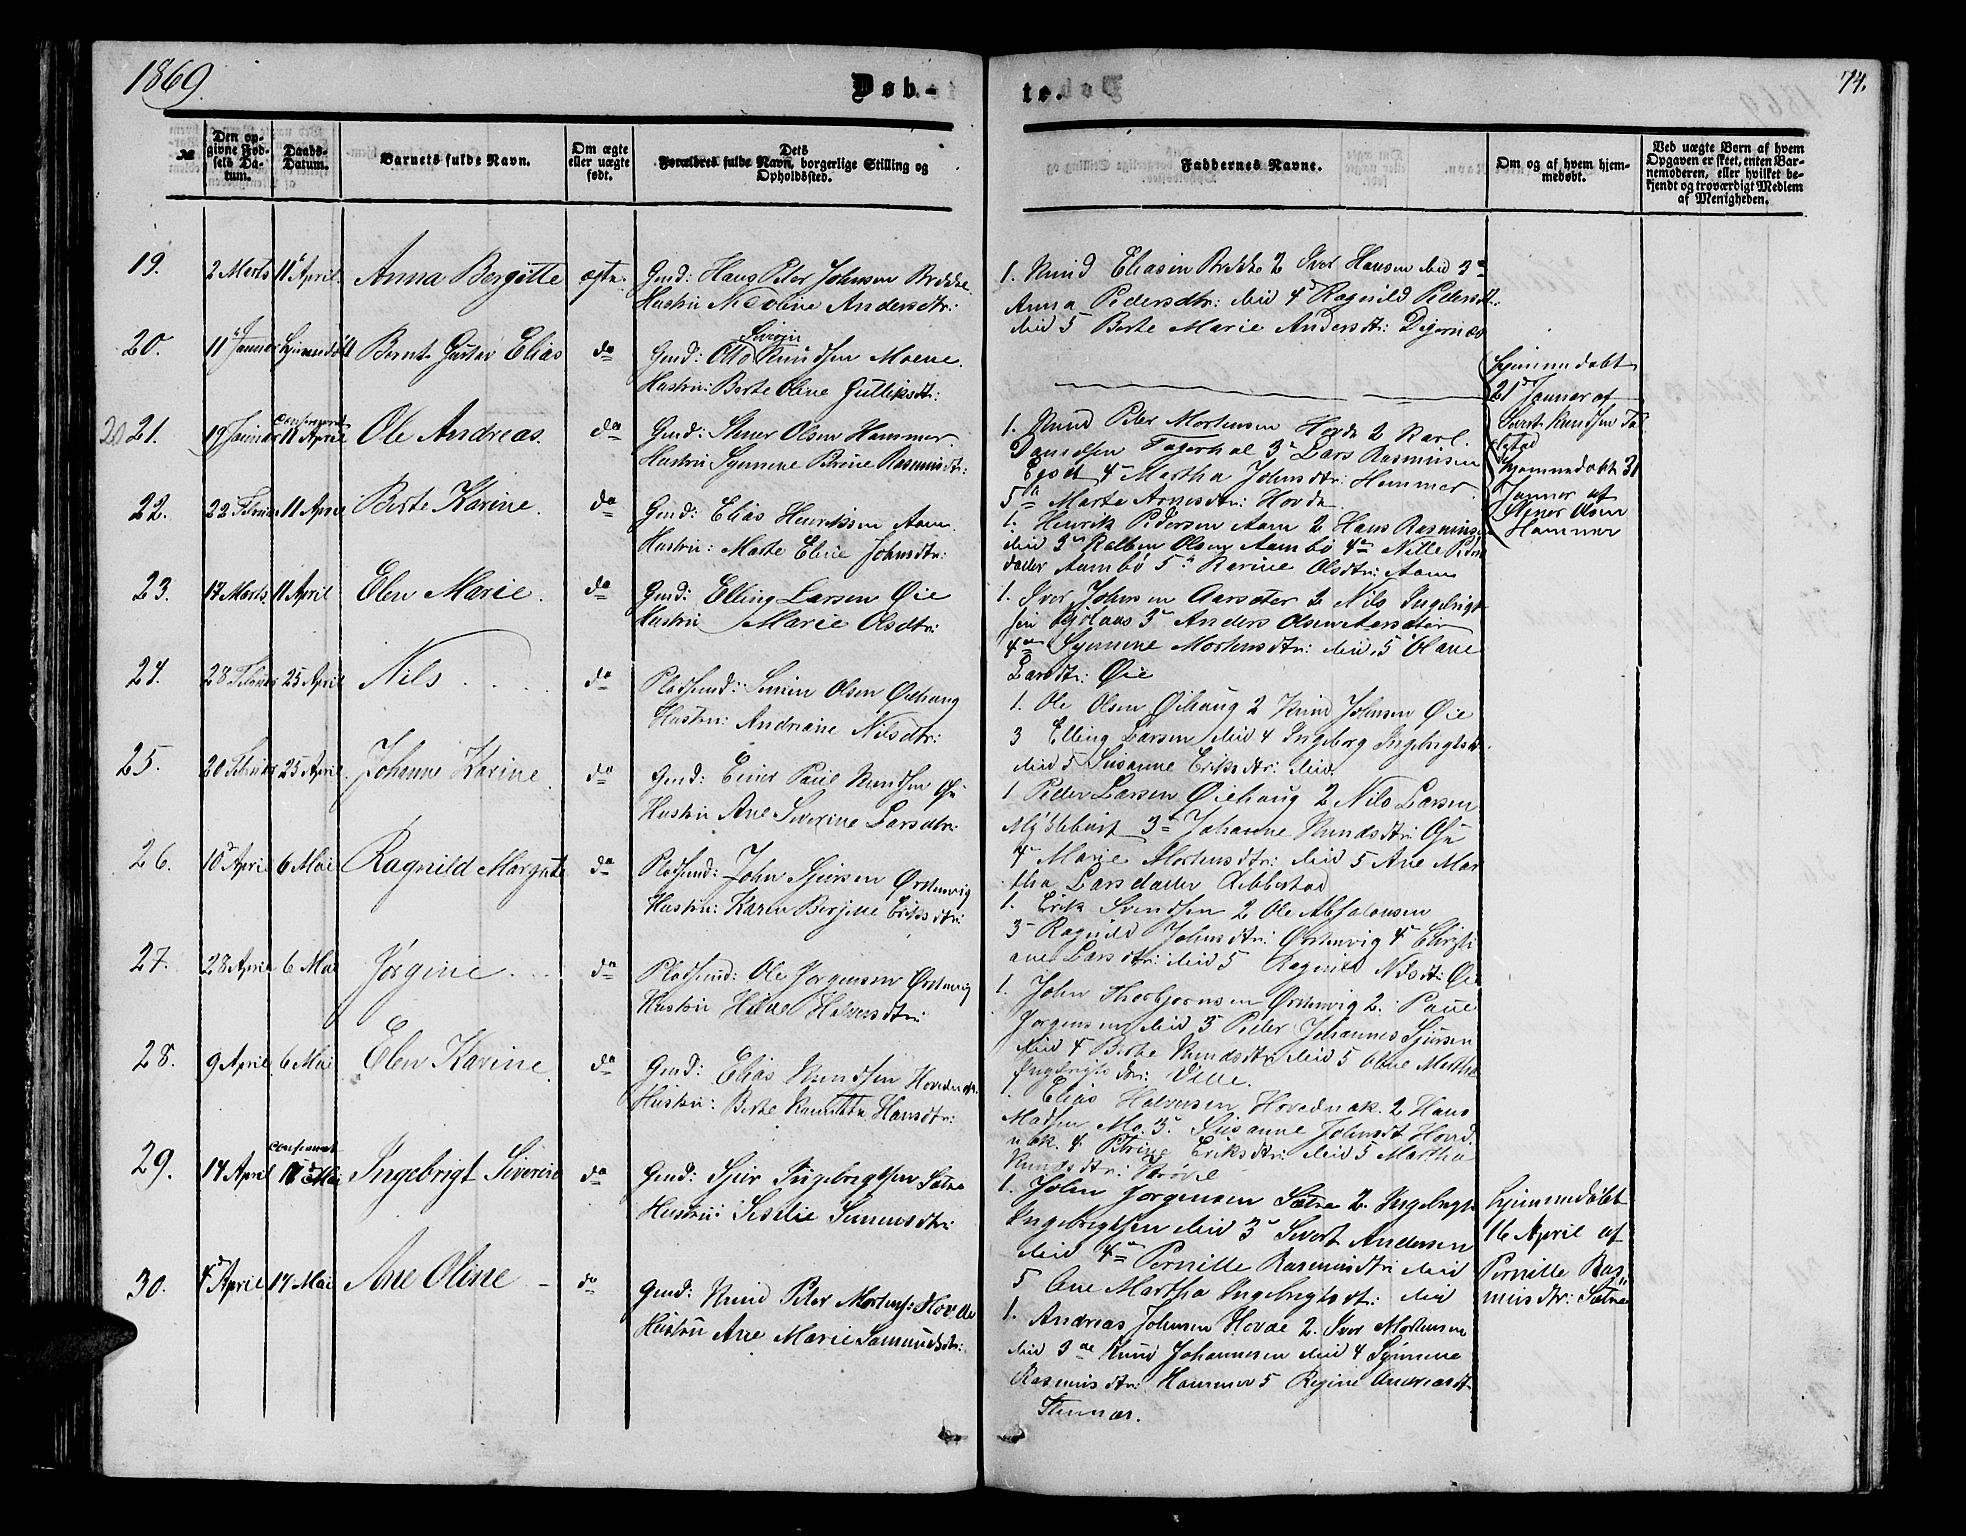 1869.
Døb-
te.
74.
№
Den opgivne Fødsels Datum.
Daabs-Datum.
Barnets fulde Navn.
Om ægte eller uægte født.
Dets Forældres fulde Navn, borgerlige Stilling og Opholdssted.
Faddernes Navne.
Om og af hvem hjemmedøbt.
Ved uægte Børn af hvem Opgaven er skeet, enten Barnemoderen, eller hvilket bekjendt og troværdigt Medlem af Menigheden.
19. 2 Marts 11 April. Anna Bergitte ægte. Gmd: Hans Peter Johnsen Brekke.
Hustru Nicoline Andersdtr:
1. Knud Eliasen Brekke 2 Iver Hansen ibid 3
Anna Pedersdtr: ibid 4 Ragnild Pedersdt.
ibid 5 Berte Marie Andersdtr: Digernæs
20. 11 Januar hjemmedøbt Bernt Gustav Elias do Gmd: Otto Knudsen Moene.
Hustru: Berte Oline Gulliksdtr:
hjemmedøbt
21 Januar af
Sivert Knudsen
21. 19 Januar Confirmeret 11 April Ole Andreas. do Gmd: Stener Olsen Hammer.
Hustru Synneve Petrine Rasmusdtr:
1. Knud Peter Mortensen Hovde 2 Karl
Danielsen 3 Lars Rasmusen
4 Martha Johnsdtr: Hammer.
5 Marte Arnesdtr: Hovde
hjemmedøbt 31
Januar af
Stener Olsen
Hammer
22. 22 Februar 11 April Berte Karine. do Gmd: Elias Henriksen Aam.
Hustru: Marte Eline Johnsdtr:
1. Henrik Pedersen Aam 2 Hans Rasmusen
ibid 3 Kolben Olsen Aambø 4 Nille Peders
datter Aambø 5 Karine Olsdtr: Aam
23. 17 Marts 11 April Elen Marie. do Gmd: Elling Larsen Øie
Hustru Marie Olsdtr:
1. Iver Johnsen Aarseter 2 Nils Ingebrigt
sen 3 Anders Olsen Aarseter
4 Synneve Mortensdtr: ibid 5 Olave
Larsdtr: Øie
24. 28 Februar 25 April Nils do Pladsmd: Simen Olsen Øiehaug
Hustru: Andriane Nilsdtr:
1. Ole Olsen Øiehaug 2 Knud Johnsen Øie
3 Elling Larsen ibid 4 Ingeborg Ingebrigtsdt.
ibid 5 Susanne Eriksdtr: ibid
25. 20 Februar 25 April. Johanne Karine do Gmd: Einer Paul Knudsen
Hustru Ane Severine Larsdtr:
1 Peder Larsen Øiehaug 2 Nils Larsen
Myklebust 3 Johanne Knudsdtr:
4 Marie Mortensdtr: ibid 5 Ane Mar
tha Larsdatter
26. 10 April 6 Mai Ragnild Margrete do Pladsmd: John Sjursen Ørstenvig
Hustru: Karen Berjette Eriksdtr:
1. Erik Svendsen 2 Ole Absalonsen
3 Ragnild Johnsdtr: Ørstenvig 4 Christi
ane Larsdtr: ibid 5 Ragnild Nilsdtr: Øie
27. 28 April 6 Mai Jørgine do Pladsmd: Ole Jørgensen Ørstenvig
Hustru Halvorsdtr:
1. John Thorbjørnsen Ørstenvig 2. Paul
Jørgensen ibid 3 Peder Johannes Sjursen
ibid 4 Berte Knudsdtr: ibid 5 Oline Martha
Ingebrigtsdtr: Ville.
28. 9 April 6 Mai Elen Karine do Gmd: Elias Knudsen Hovednak.
Hustru: Berte Hansdtr:
1. Elias Halvorsen Hovednak. 2 Hans
Madsen Mo. 3. Susanne Johnsdt Hovd
nak. 4 Petrine Eriksdtr: ibid 5 Martha
Knudsdtr:
29. 14 April Confirmeret 17 Mai Ingebrigt Severin do Gmd: Sjur Ingebrigtsen Sætre
Hustru: Sisilie Simensdtr:
1. John Jørgensen Sætre 2. Ingebrigt
Ingebrigtsen ibid 3 Sivert Andersen
ibid 4 Pernille Rasmusdtr: ibid
5 Ane Martha Ingebrigtsdt: ibid
hjemmedøbt
16 April af
Pernille Ras
musdtr: Sætre
30. 4 April 17 Mai Ane Oline do Gmd: Knud Peter Mortens: Hovde
Hustru Ane Marie Samundsdtr:
1. Andreas Johnsen Hovde 2. Iver Mortensen
ibid 3 Knud Johannesen ibid 4 Synneve
Rasmusdtr: Hammer 5 Regine Andreasdt.
Steinnæs.